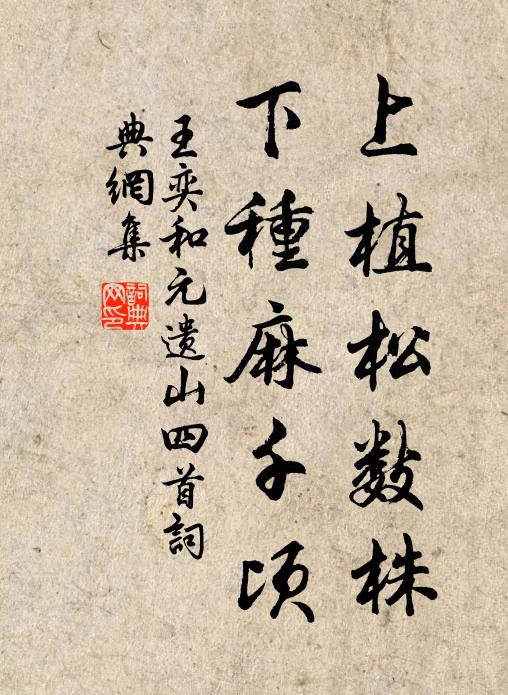 上植松數株
下種麻千頃
王奕和元遗山四首詞
典網集
詞典網印